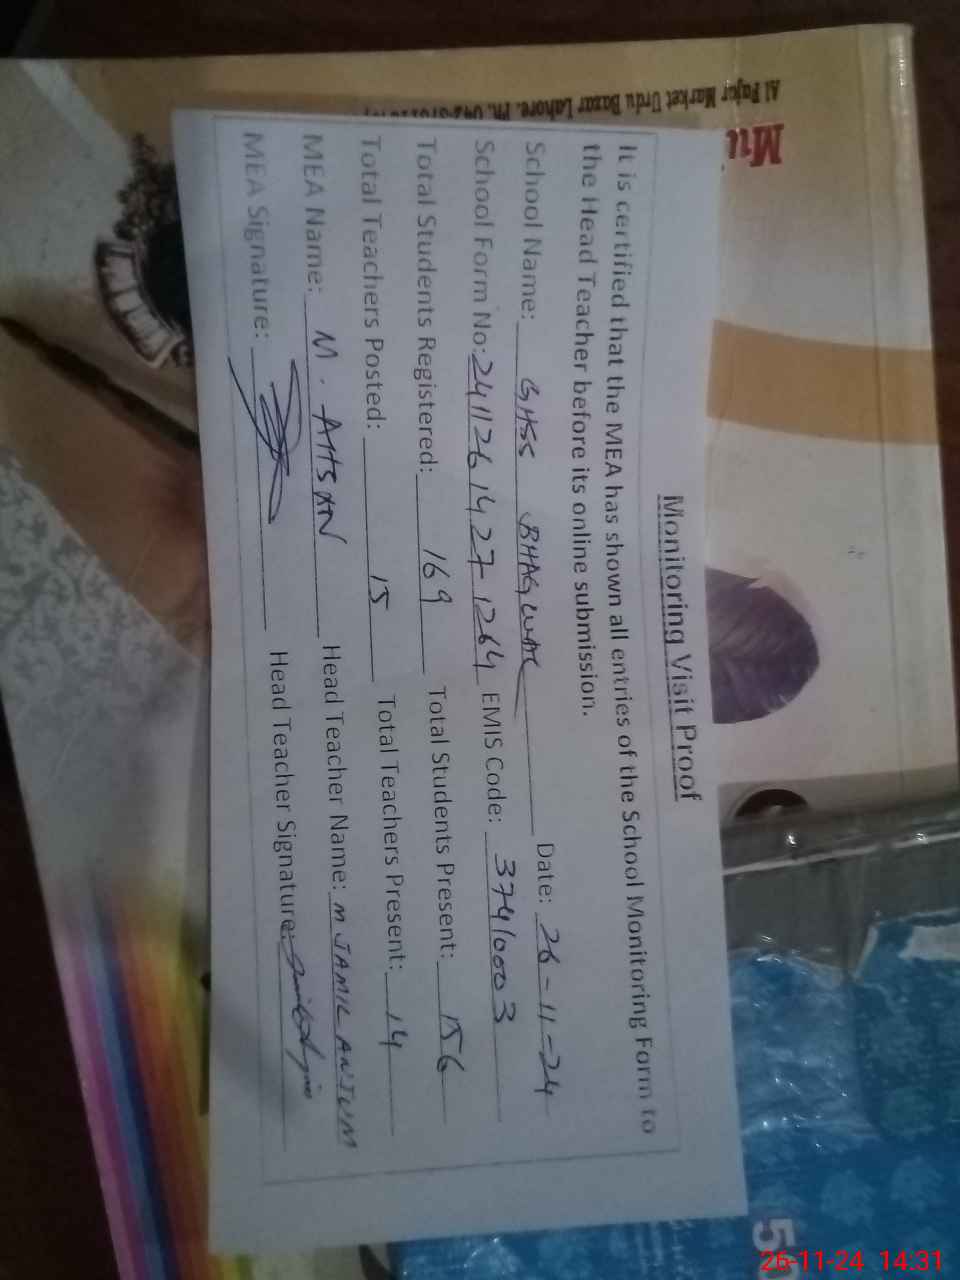 Al Fajar Market Urdu Bazar Lahore. Ph. 042
Mu
Monitoring Visit Proof
It is certified that the MEA has shown all entries of the School Monitoring Form to
the Head Teacher before its online submission.
School Name: GHSS Date: 26-11-24
School Form No: 241126 1427 1264 EMIS Code: 37410003
Total Students Registered: 169 Total Students Present: 156
Total Teachers Posted: 15 Total Teachers Present: 14
MEA Name: M. AHSAN Head Teacher Name: M JAMIL ANJUM
MEA Signature: Head Teacher Signature:
5
26-11-24 14:31